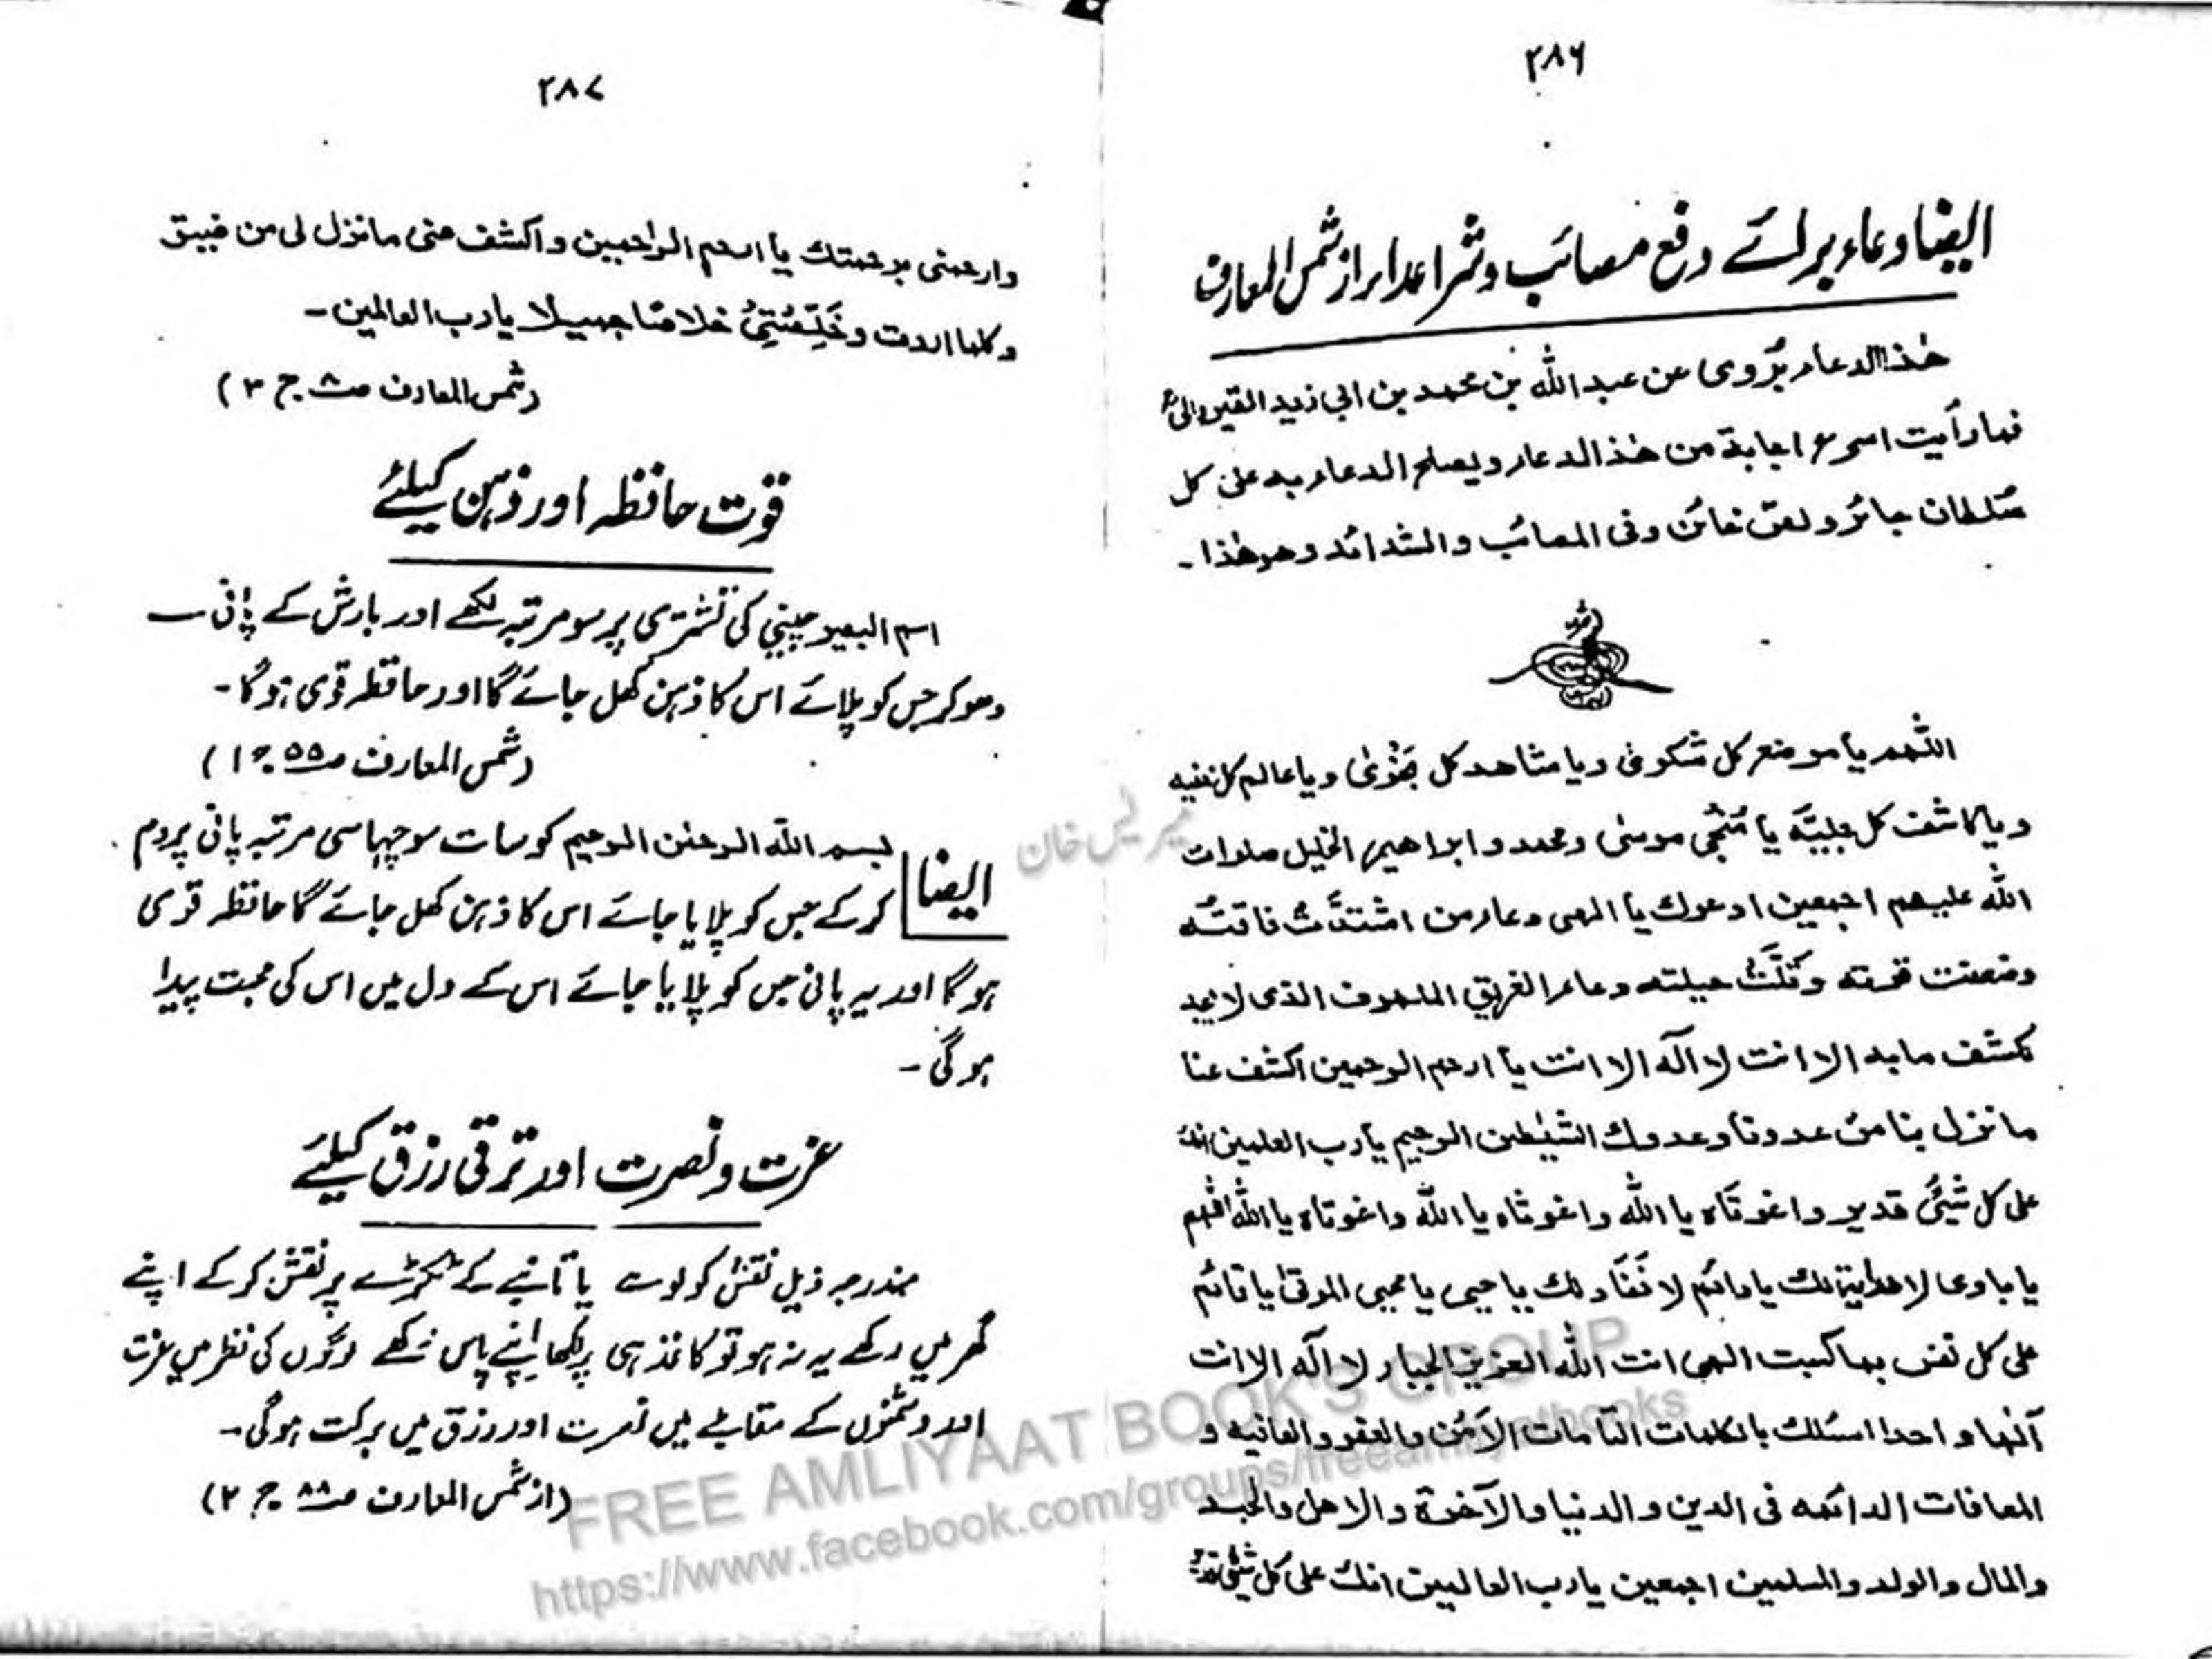 ۲۸۶
ایضا دعاء برائے دفع مصائب و شر اعداء از شمس المعارف
هٰذا الدعاء یُروی عن عبد اللّٰه بن محمد بن ابی زید القیروانی
فما رأیت اسرع اجابة من هٰذ الدعاء ویصلح الدعاء به علی کل
سُلطان جائر و لعن خائن وفی المصائب والشدائد وهو هٰذا۔
اللّٰهم یا موضع کل شکوٰی ویا مشاهد کل نجْوٰی ویا عالم کل خفیه
ویا کاشف کل بلیَّه یا مُنْجی موسیٰ ومحمد و ابراهیم الخلیل صلوات
اللّٰه علیهم اجمعین ادعوك یا الهی دعاء من اشتدَّتْ فاقتُه
وضعفت قوته وقَلَّتْ حیلته دعاء الغریق الملهوف الذی لا یجد
لکشف ما به الا انت لا اله الا انت یا ارحم الرحمین اکشف عنا
ما نزل بنا من عدونا وعدوك الشیٰطن الرجیم یا رب العلمین انك
علی کل شیئ قدیر واغوثاه یا اللّٰه واغوثاه یا اللّٰه واغوثاه یا اللّٰه اللّٰهم
یا بادی لا بدایة لك یا دائم لا نَفَاد لك یا حیی یا محیی الموتیٰ یا قائم
علی کل نفس بما کسبت الهی انت اللّٰه العزیز الجبار لا اله الا انت
آلٰها واحدا اسئلك بالکلمات التامات الاَمْن والعفو والعافیه و
المعافات الدائمه فی الدین والدنیا والآخرة والاهل والجسد
والمال والولد والمسلمین اجمعین یا رب العالمین انك علی کل شیئ قدیر
۲۸۷
وارحمنی برحمتك یا ارحم الراحمین واکشف عنی ما نزل لی من ضیق
وکلما اردت وخَلِّصْنِیْ خلاصًا جمیلا یا رب العالمین۔
(شمس المعارف صـ۸ ج ۳)
قوت حافظہ اور ذہن کیلئے
اسم البصیر چینی کی تشتری پر سو مرتبہ لکھے اور بارش کے پانی سے
دھو کر جس کو پلائے اس کا ذہن کھل جائے گا اور حافظہ قوی ہو گا۔
(شمس المعارف صـ۵۵ ج ۱)
بسم اللّٰه الرحمٰن الرحیم کو سات سو چھیاسی مرتبہ پانی پر دم
ایضا کر کے جس کو پلایا جائے اس کا ذہن کھل جائے گا حافظہ قوی
ہو گا اور یہ پانی جس کو پلایا جائے اس کے دل میں اس کی محبت پیدا
ہو گی۔
عزت و نصرت اور ترقی رزق کیلئے
مندرجہ ذیل نقش کو لوہے یا تانبے کے ٹکڑے پر نقش کر کے اپنے
گھر میں رکھے یہ نہ ہو تو کاغذ ہی پر لکھا اپنے پاس رکھے لوگوں کی نظر میں عزت
اور دشمنوں کے مقابلے میں نصرت اور رزق میں برکت ہو گی۔
(از شمس المعارف صـ۸۸ ج ۲)
FREE AMLIYAAT BOOK'S GROUP
https://www.facebook.com/groups/freeamliyatbooks